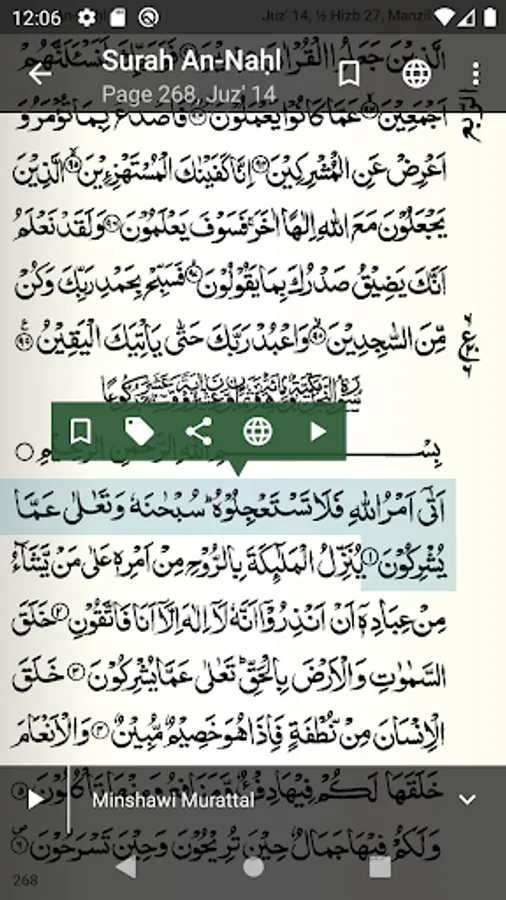 12:06
Juz' 14, ½ Hizb 27, Manzil
Surah An-Naḥl
Page 268, Juz' 14
الَّذِيْنَ جَعَلُوا الْقُرْاٰنَ لَنَسْـَٔلَنَّهُمْ
اَجْمَعِيْنَ ﴿٩٢﴾ عَمَّا كَانُوْا يَعْمَلُوْنَ ﴿٩٣﴾ فَاصْدَعْ بِمَا تُؤْمَرُ وَ
اَعْرِضْ عَنِ الْمُشْرِكِيْنَ ﴿٩٤﴾ اِنَّا كَفَيْنٰكَ الْمُسْتَهْزِءِيْنَ ﴿٩٥﴾ الَّذِيْنَ
يَجْعَلُوْنَ مَعَ اللّٰهِ اِلٰهًا اٰخَرَ ۚ فَسَوْفَ يَعْلَمُوْنَ ﴿٩٦﴾ وَلَقَدْ نَعْلَمُ
اَنَّكَ يَضِيْقُ صَدْرُكَ بِمَا يَقُوْلُوْنَ ﴿٩٧﴾ فَسَبِّحْ بِحَمْدِ رَبِّكَ وَكُنْ
مِّنَ السّٰجِدِيْنَ ﴿٩٨﴾ وَاعْبُدْ رَبَّكَ حَتّٰى يَاْتِيَكَ الْيَقِيْنُ ﴿٩٩﴾ ع
بِسْمِ اللّٰهِ الرَّحْمٰنِ الرَّحِيْمِ
اَتٰۤى اَمْرُ اللّٰهِ فَلَا تَسْتَعْجِلُوْهُ ؕ سُبْحٰنَهٗ وَتَعٰلٰى عَمَّا
يُشْرِكُوْنَ ﴿١﴾ يُنَزِّلُ الْمَلٰٓئِكَةَ بِالرُّوْحِ مِنْ اَمْرِهٖ عَلٰى مَنْ يَّشَآءُ
مِنْ عِبَادِهٖۤ اَنْ اَنْذِرُوْۤا اَنَّهٗ لَاۤ اِلٰهَ اِلَّاۤ اَنَا فَاتَّقُوْنِ ﴿٢﴾ خَلَقَ
السَّمٰوٰتِ وَالْاَرْضَ بِالْحَقِّ ؕ تَعٰلٰى عَمَّا يُشْرِكُوْنَ ﴿٣﴾ خَلَقَ
الْاِنْسَانَ مِنْ نُّطْفَةٍ فَاِذَا هُوَ خَصِيْمٌ مُّبِيْنٌ ﴿٤﴾ وَالْاَنْعَامَ
خَلَقَهَا ۚ لَكُمْ فِيْهَا دِفْءٌ وَّمَنَافِعُ وَمِنْهَا تَاْكُلُوْنَ ﴿٥﴾
Minshawi Murattal
وَلَكُمْ فِيْهَا جَمَالٌ حِيْنَ تُرِيْحُوْنَ وَحِيْنَ تَسْرَحُوْنَ ﴿٦﴾
268